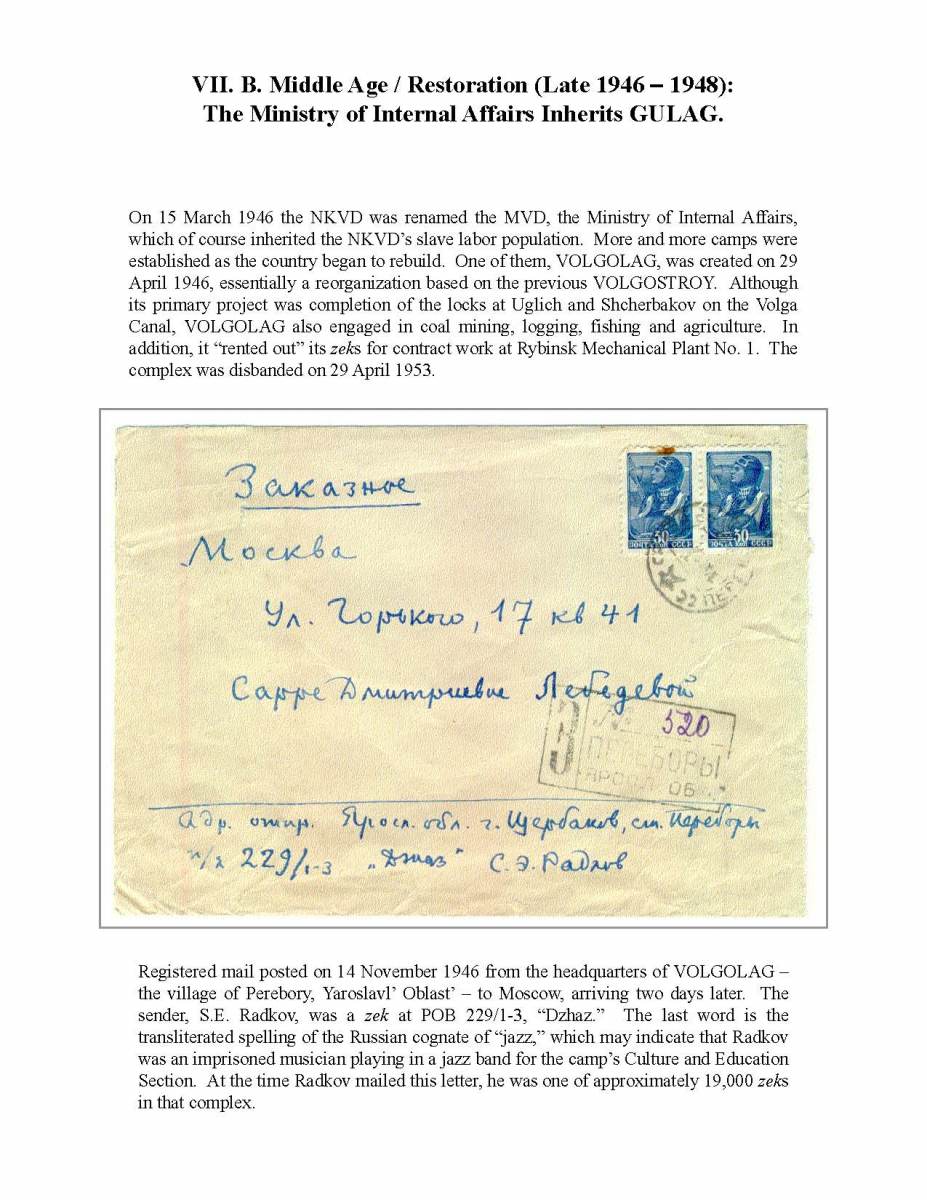 VII. B. Middle Age / Restoration (Late 1946 – 1948):
The Ministry of Internal Affairs Inherits GULAG.
On 15 March 1946 the NKVD was renamed the MVD, the Ministry of Internal Affairs,
which of course inherited the NKVD's slave labor population. More and more camps were
established as the country began to rebuild. One of them, VOLGOLAG, was created on 29
April 1946, essentially a reorganization based on the previous VOLGOSTROY. Although
its primary project was completion of the locks at Uglich and Shcherbakov on the Volga
Canal, VOLGOLAG also engaged in coal mining, logging, fishing and agriculture. In
addition, it “rented out” its zeks for contract work at Rybinsk Mechanical Plant No. 1. The
complex was disbanded on 29 April 1953.
Заказное
30 30
ПОЧТА СССР ПОЧТА СССР
Москва
Ул. Горького, 17 кв 41
Сарре Дмитриевне Лебедевой
З № 520
ПЕРЕБОРЫ
ЯРОСЛ ОБ
Адр. отпр. Яросл. обл. г. Щербаков, ст. Переборы
п/я 229/1-3 „Джаз" С. Э. Радлов
Registered mail posted on 14 November 1946 from the headquarters of VOLGOLAG –
the village of Perebory, Yaroslavl’ Oblast’ – to Moscow, arriving two days later. The
sender, S.E. Radkov, was a zek at POB 229/1-3, “Dzhaz.” The last word is the
transliterated spelling of the Russian cognate of “jazz,” which may indicate that Radkov
was an imprisoned musician playing in a jazz band for the camp’s Culture and Education
Section. At the time Radkov mailed this letter, he was one of approximately 19,000 zeks
in that complex.